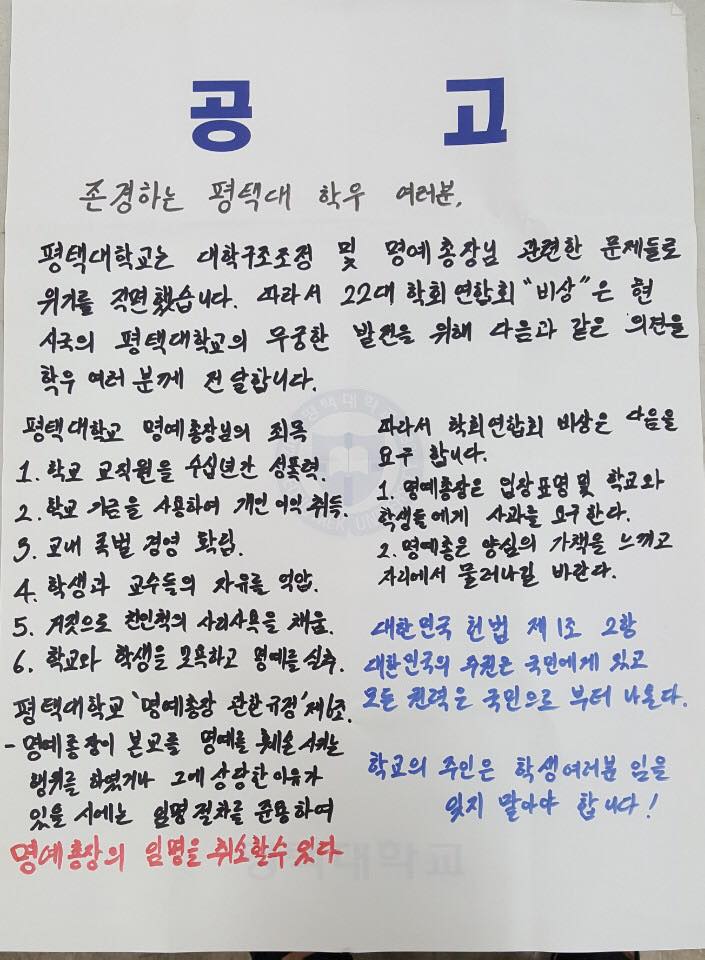 공 고
존경하는 평택대 학우 여러분,
평택대학교는 대학구조조정 및 명예총장님 관련한 문제들로
위기를 직면했습니다. 따라서 22대 학회연합회 "비상"은 현
시국의 평택대학교의 무궁한 발전을 위해 다음과 같은 의견을
학우 여러분께 전달합니다.
평택대학교 명예총장님의 죄목
1. 학교 교직원을 수십년간 성폭력.
2. 학교 기금을 사용하여 개인 이익 취득.
3. 교내 족벌 경영 확립.
4. 학생과 교수들의 자유를 억압.
5. 거짓으로 친인척의 사리사욕을 채움.
6. 학교와 학생을 모욕하고 명예를 실추.
평택대학교 '명예총장 관한 규정' 제1조.
- 명예총장이 본교를 명예를 훼손 시키는
행위를 하였거나 그에 상당한 이유가
있을 시에는 임명 절차를 준용하여
명예총장의 임명을 취소할수 있다
따라서 학회연합회 비상은 다음을
요구 합니다.
1. 명예총장은 입장표명 및 학교와
학생들에게 사과를 요구한다.
2. 명예총은 양심의 가책을 느끼고
자리에서 물러나길 바란다.
대한민국 헌법 제1조 2항
대한민국의 주권은 국민에게 있고
모든 권력은 국민으로 부터 나온다.
학교의 주인은 학생여러분 임을
잊지 말아야 합니다!
평택대학교